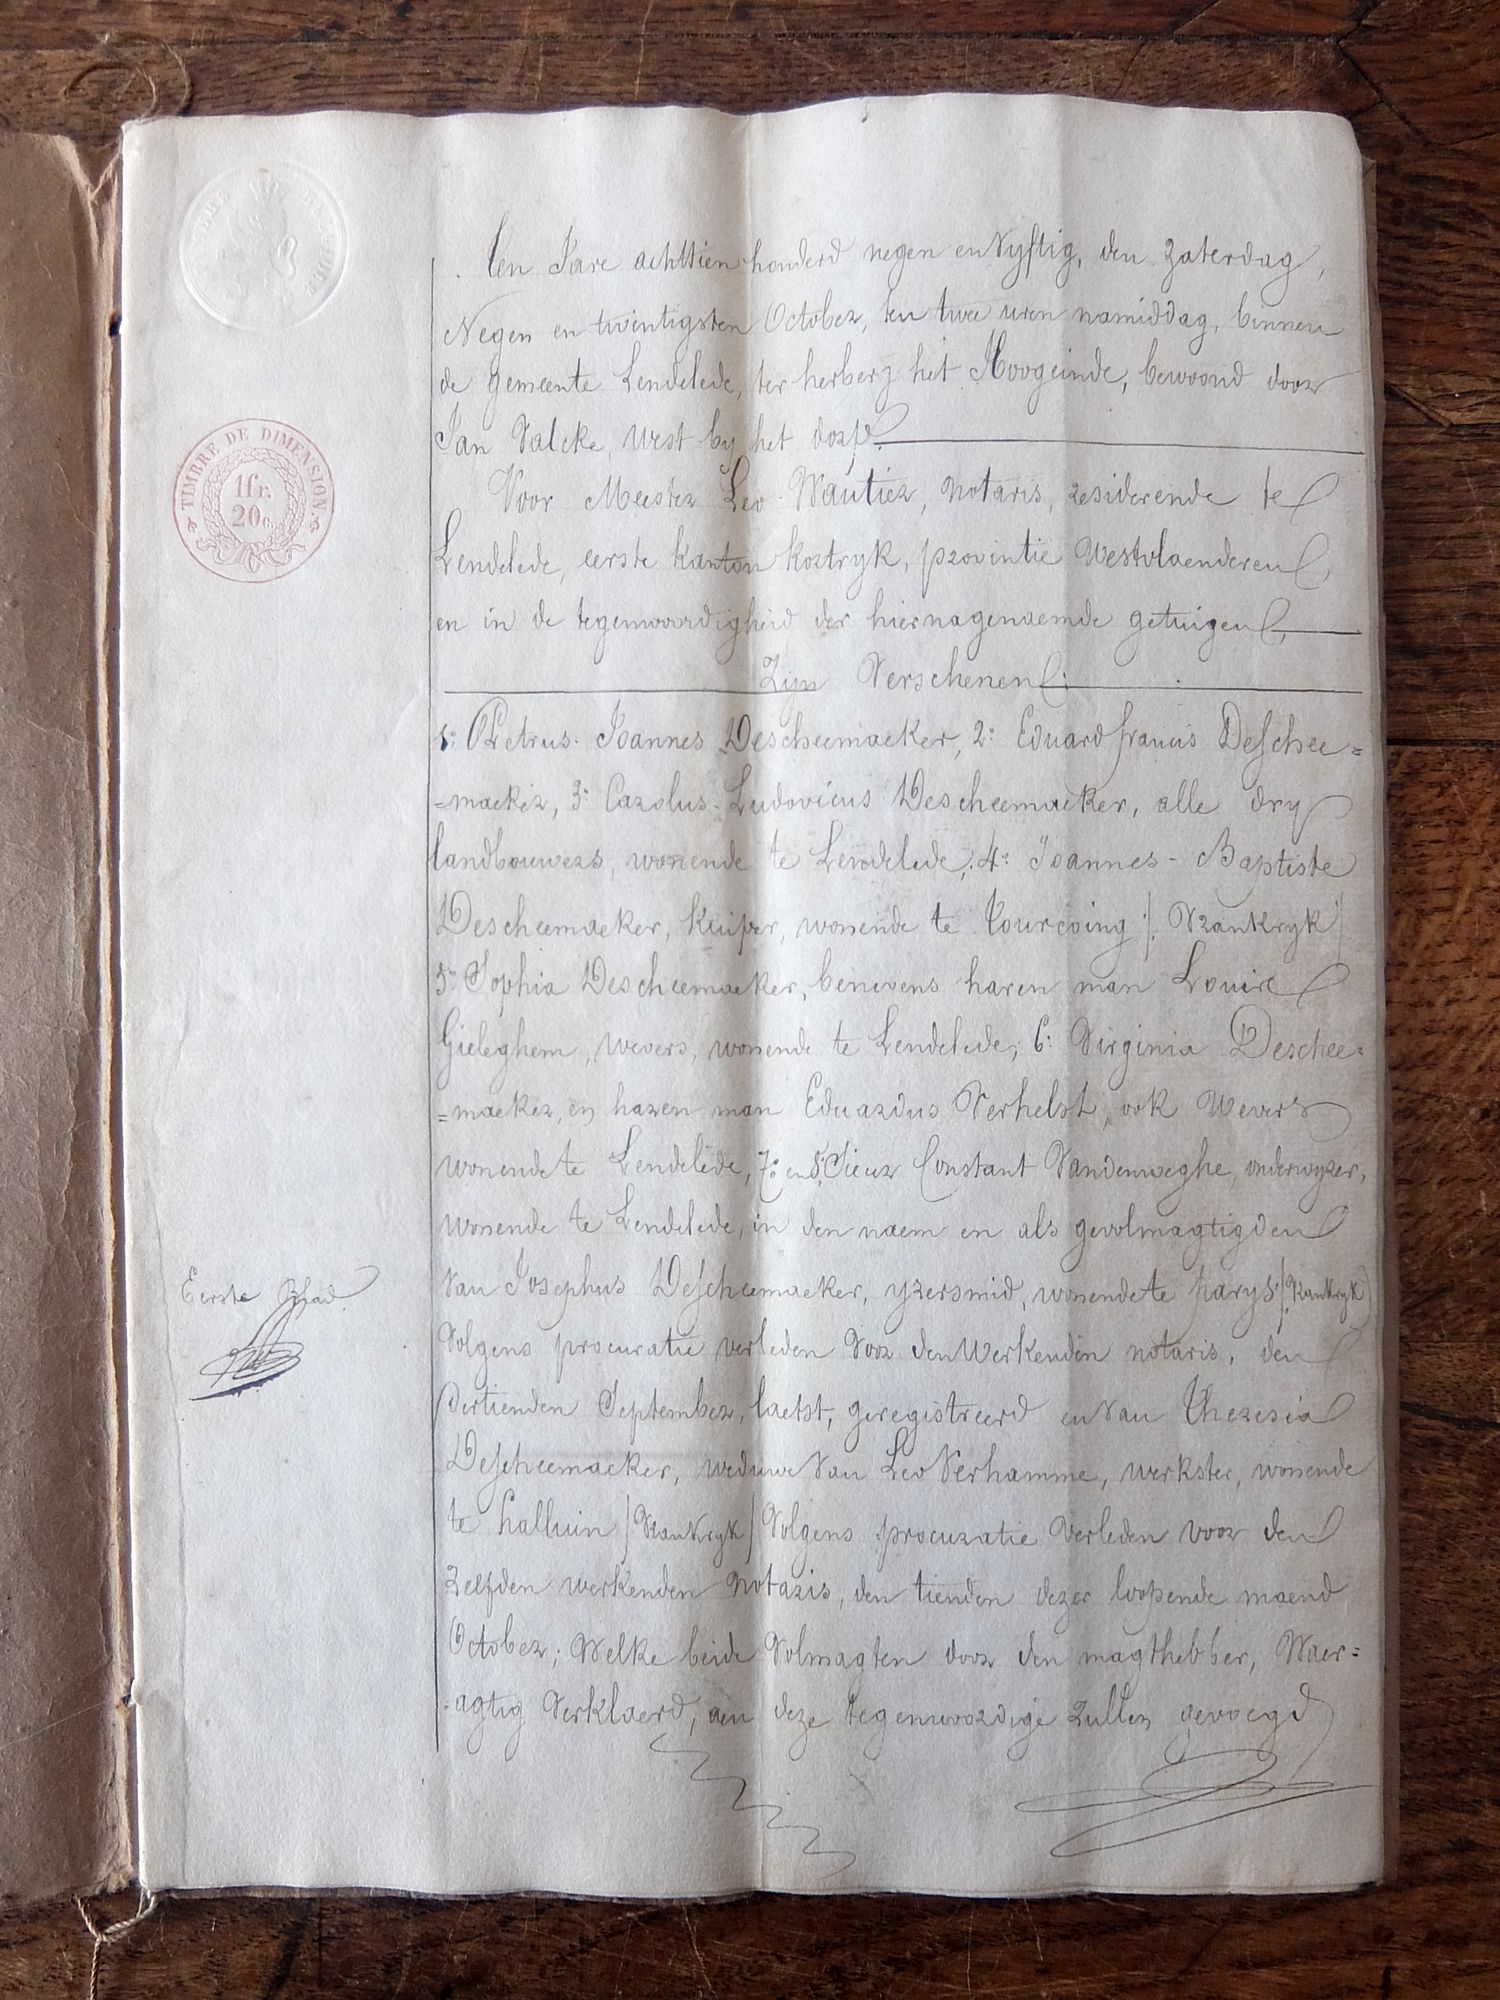 TIMBRE DE DIMENSION
1fr.
20c.
Ten Jare achttien honderd negen en Vyftig, den Zaterdag,
Negen en twintigsten October, ten twee uren namiddag, binnen
de gemeente Lendelede, ter herberg het Hoogeinde, bewoond door
Jan Valcke, west by het dorp.
Voor Meester Leo Wautier, notaris, resideerende te
Lendelede, eerste kanton Kortryk, provintie Westvlaenderen,
en in de tegenwoordigheid der hiernagenaemde getuigen,
Zijn Verschenen:
1° Petrus Joannes Descheemaeker, 2° Eduard francis Deschee=
=maeker, 3° Carolus-Ludovicus Descheemaeker, alle dry
landbouwers, wonende te Lendelede, 4° Joannes-Baptiste
Descheemaeker, Kuiper, wonende te Tourcoing /. Vrankryk /
5° Sophia Descheemaeker, benevens haren man Louis
Gieleghem, wevers, wonende te Lendelede; 6° Virginia Deschee=
=maeker, en haren man Eduardus Verhelst, ook Wevers
wonende te Lendelede, 7° en 8° Sieur Constant Vandenweghe, onderwyzer,
wonende te Lendelede, in den naem en als gevolmagtigden
Van Josephus Descheemaeker, yzersmid, wonende te parys /. Vrankryk)
Eerste Blad
Volgens procuratie verleden Voor den Werkenden notaris, den
dertienden September, laetst, geregistreerd en Van Theresia
Descheemaeker, weduwe Van Leo Verhamme, werkster, wonende
te halluin / Vrankryk / Volgens procuratie verleden voor den
Zelfden werkenden Notaris, den tienden dezer loopende maend
October; Welke beide Volmagten door den magthebber, Waer=
=agtig Verklaerd, aen deze tegenwoordige zullen gevoegd